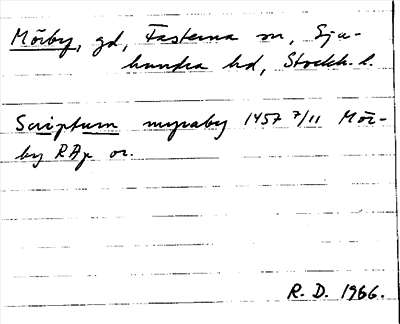 Mörby, gd, Fasterna sn, Sju-
hundra hd, Stockh. l.
Scriptum myraby 1457 7/11 Mör-
by RAp or.
R. D. 1966.